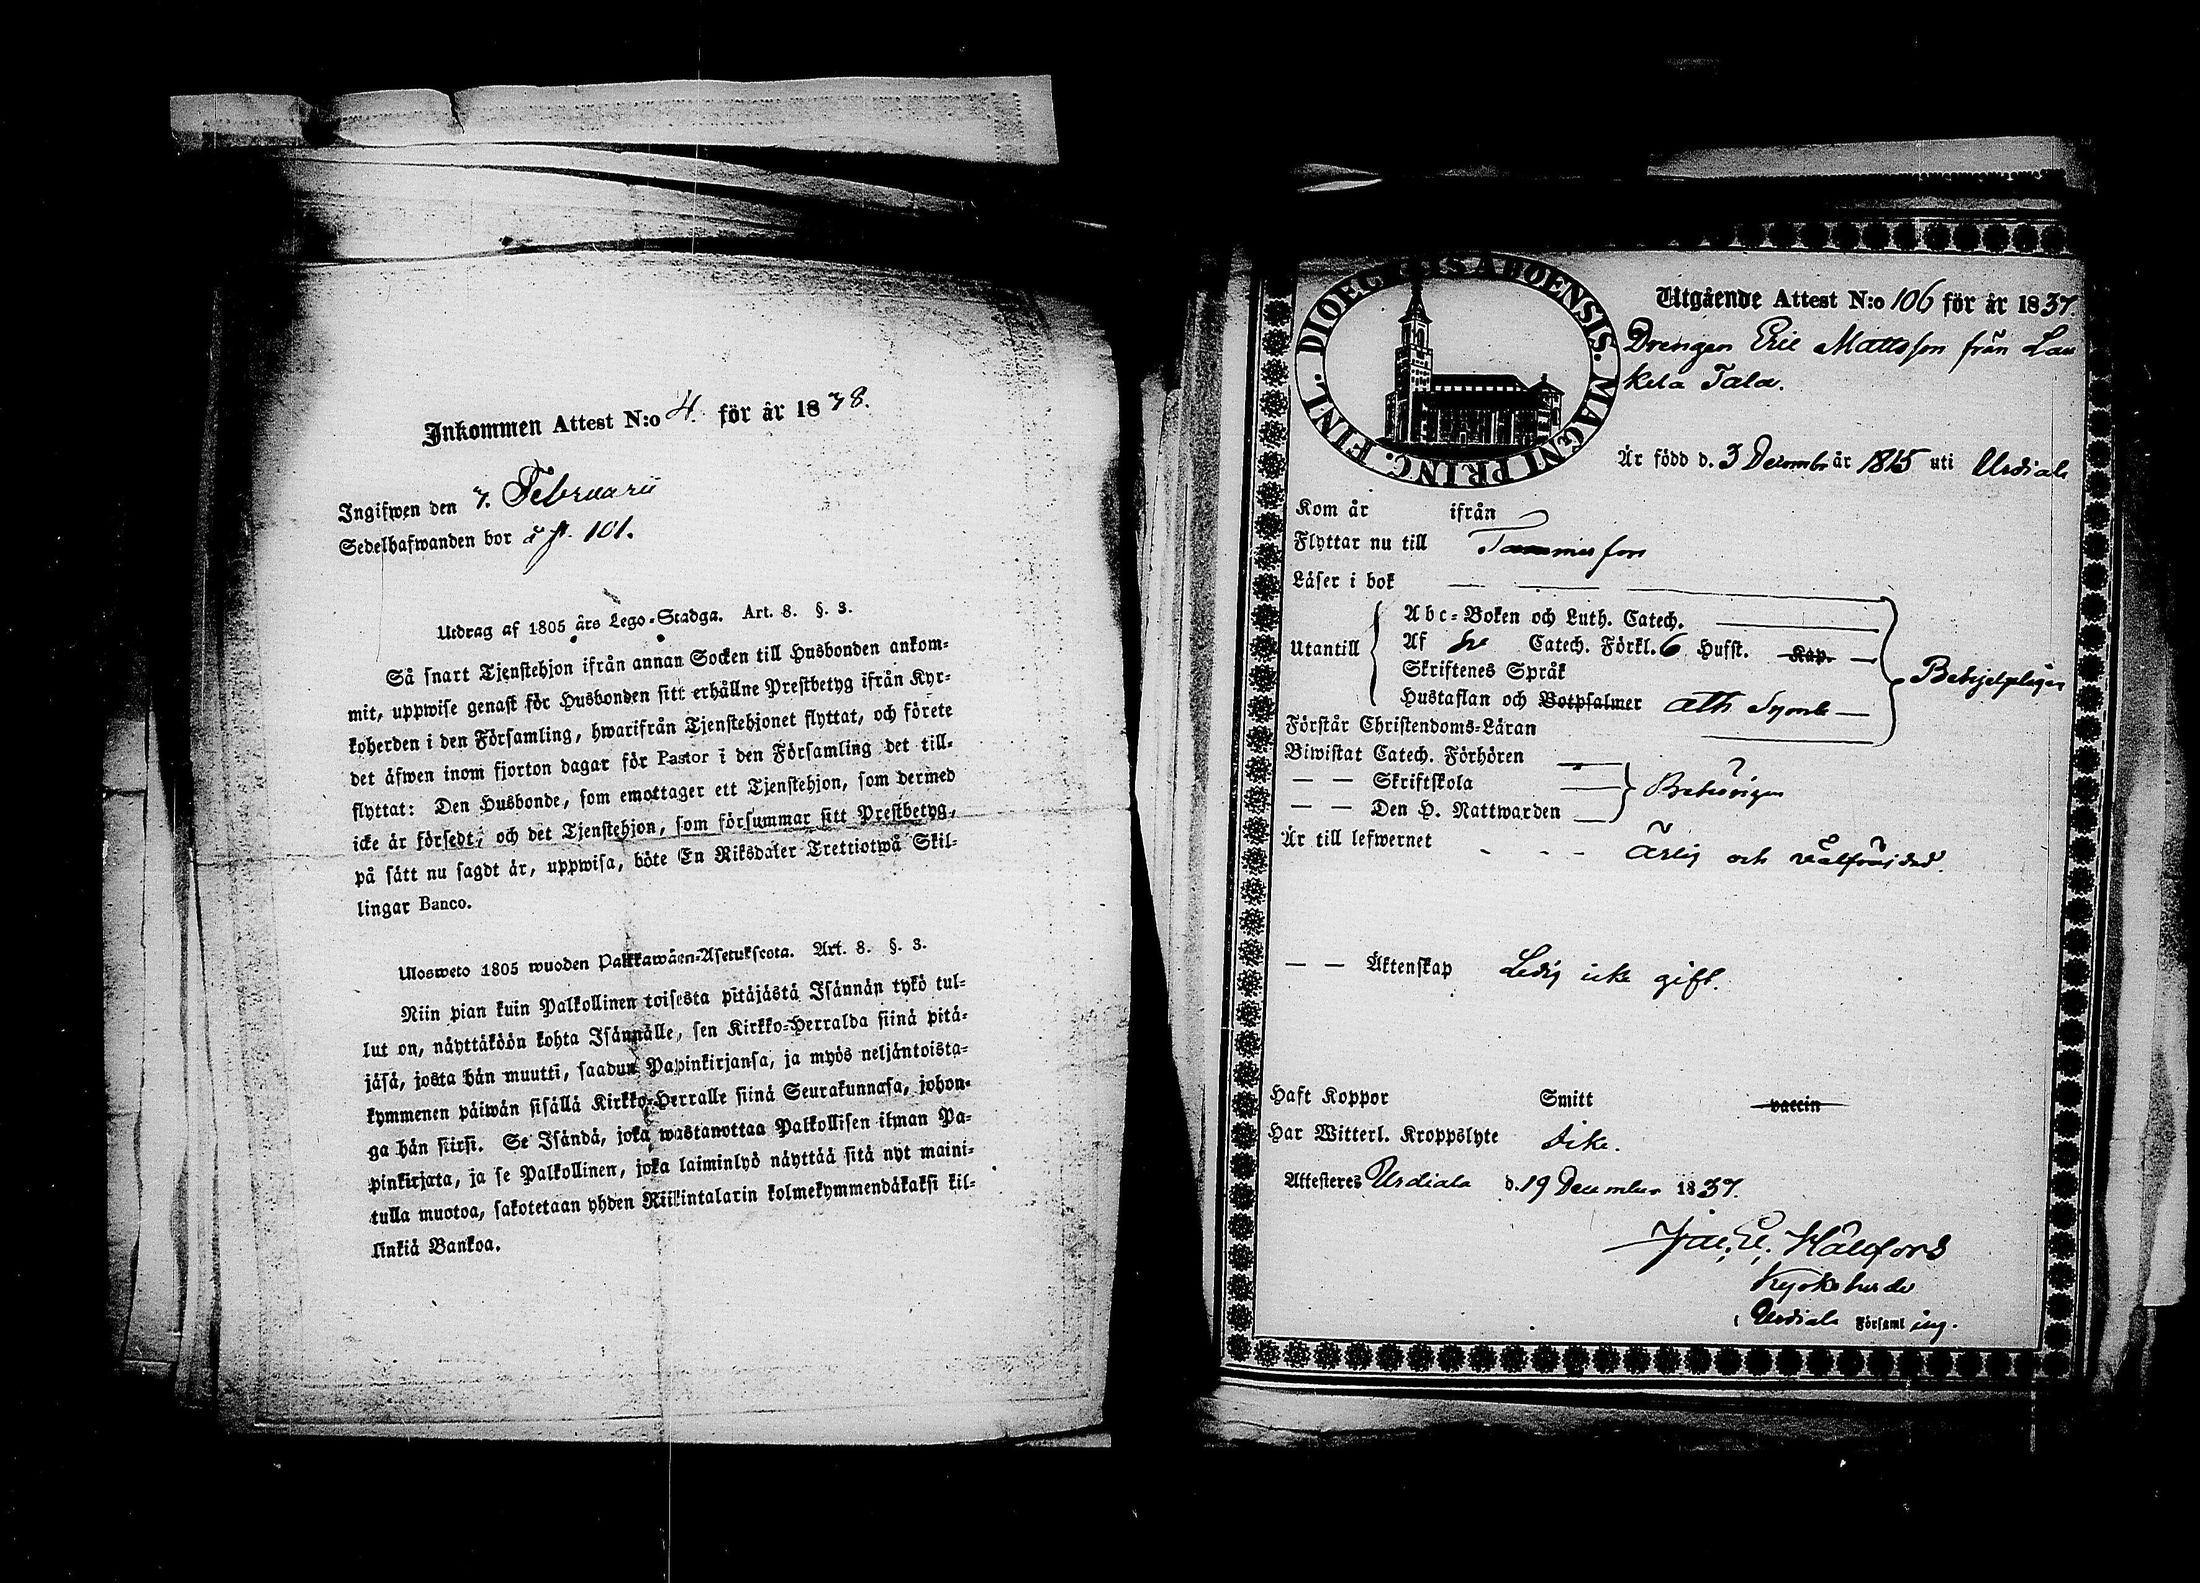 Inkommen Attest N:o 4. för år 1838.
Ingifwen den 7. Februarii
Sedelhafwanden bor å p. 101.
Utdrag af 1805 års Lego-Stadga. Art. 8. §. 3.
Så snart Tjenstehjon ifrån annan Socken till Husbonden ankom-
mit, uppwise genast för Husbonden sitt erhållne Prestbetyg ifrån Kyr-
koherden i den Församling, hwarifrån Tjenstehjonet flyttat, och förete
det äfwen inom fjorton dagar för Pastor i den Församling det till-
flyttat: Den Husbonde, som emottager ett Tjenstehjon, som dermed
icke är försedt, och det Tjenstehjon, som försummar sitt Prestbetyg,
på sätt nu sagdt är, uppwisa, böte En Riksdaler Trettiotwå Skil-
lingar Banco.
Ulosweto 1805 wuoden Palkkawäen-Asetuksesta. Art. 8. §. 3.
Niin pian kuin Palkollinen toisesta pitäjästä Isännän tykö tul-
lut on, näyttäköön kohta Isännälle, sen Kirkko-Herralda siinä pitä-
jäsä, josta hän muutti, saadun Papinkirjansa, ja myös neljäntoista-
kymmenen päiwän sisällä Kirkko-Herralle siinä Seurakunnasa, johon-
ga hän siirsi. Se Isändä, joka wastanottaa Palkollisen ilman Pa-
pinkirjata, ja se Palkollinen, joka laiminlyö näyttää sitä nyt maini-
tulla muotoa, sakotetaan yhden Riikintalarin kolmekymmendäkaksi kil-
linkiä Bankoa.
DIOECESIS ABOENSIS. MAGNI PRINC. FINL.
Utgående Attest N:o 106 för år 1837.
Drengen Eric Mattsson från Lau
kela Tala.
Är född d. 3 Decembr år 1815 uti Urdiala
Kom år ifrån
Flyttar nu till Tammerfors
Läser i bok
Abc-Boken och Luth. Catech.
Utantill Af Catech. Förkl. 6 Hufst. Kap.
Skriftenes Språk
Hustaflan och Botpsalmer Ath Symb
Förstår Christendoms-Läran
Behjelpligen
Biwistat Catech. Förhören
— — Skriftskola
— — Den H. Nattwarden
Behörigen
Är till lefwernet - - - Ärlig och välfräjdad.
— — Äktenskap Ledig icke gift.
Haft Koppor Smitt vaccin
Har Witterl. Kroppslyte Icke.
Attesteras Urdiala d. 19 December 1837.
Jac. E. Hällfors
Kyrkoherde
i Urdiala Församl ing.